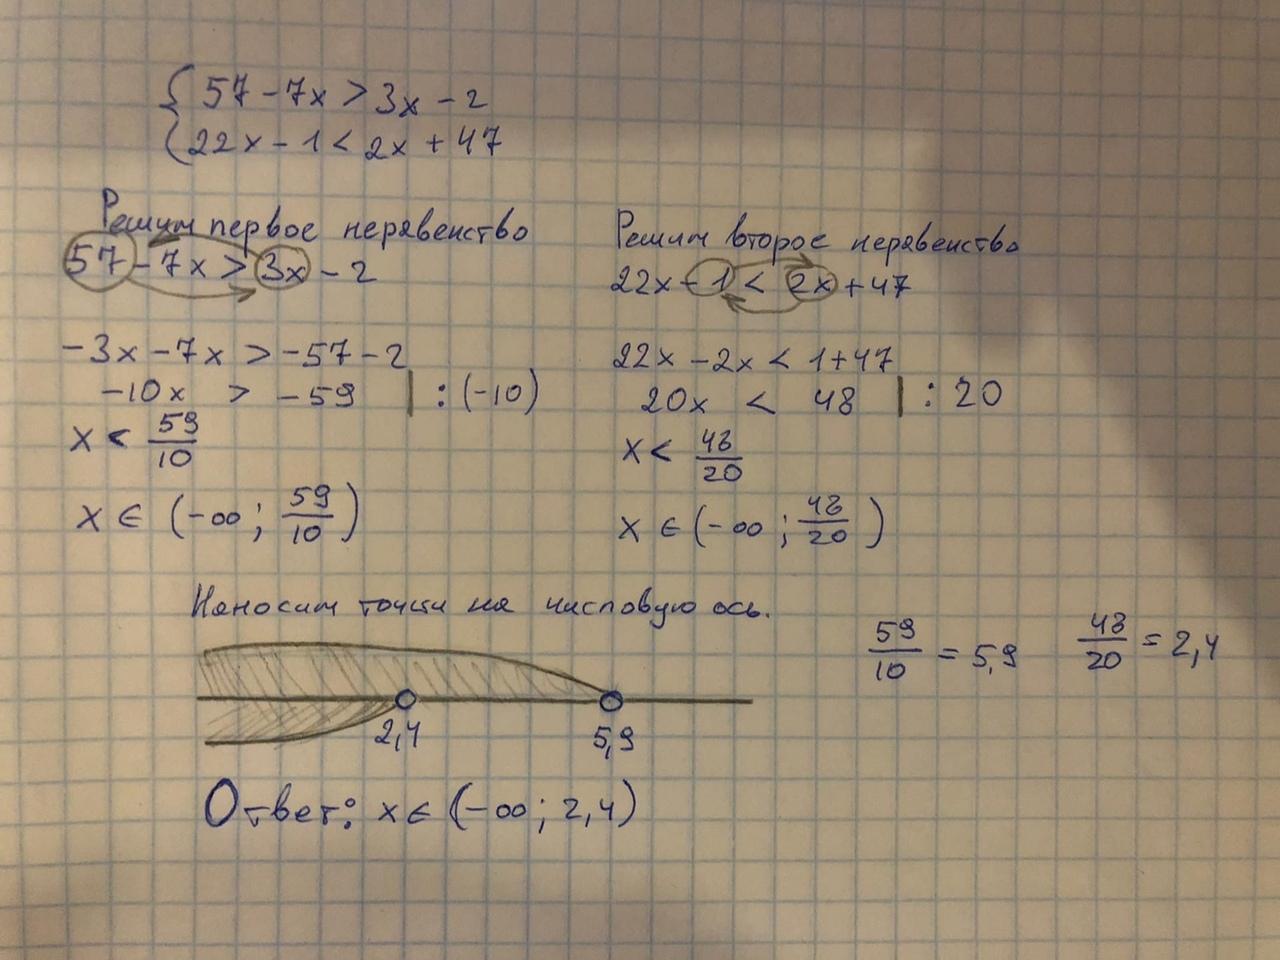 57 - 7x > 3x - 2
22x - 1 < 2x + 47
Решим первое неравенство
57 - 7x > 3x - 2
-3x - 7x > -57 - 2
-10x > -59 | : (-10)
x < 59/10
x ∈ (-∞; 59/10)
Решим второе неравенство
22x - 1 < 2x + 47
22x - 2x < 1 + 47
20x < 48 | : 20
x < 48/20
x ∈ (-∞; 48/20)
Наносим точки на числовую ось.
59/10 = 5,9 48/20 = 2,4
2,4 5,9
Ответ: x ∈ (-∞; 2,4)